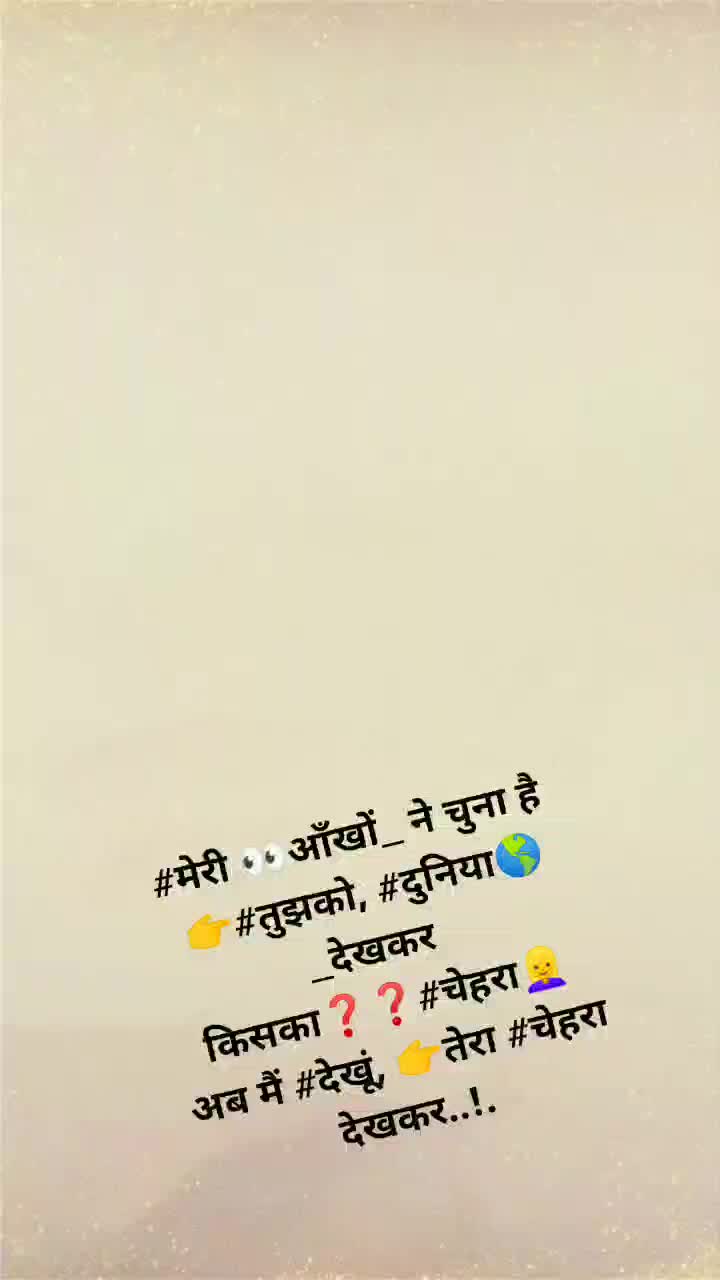 #मेरी 👀आँखों_ ने चुना है
👉#तुझको, #दुनिया🌎
_देखकर
किसका❓❓#चेहरा👱‍♀️
अब मैं #देखूं, 👉तेरा #चेहरा
देखकर..!.